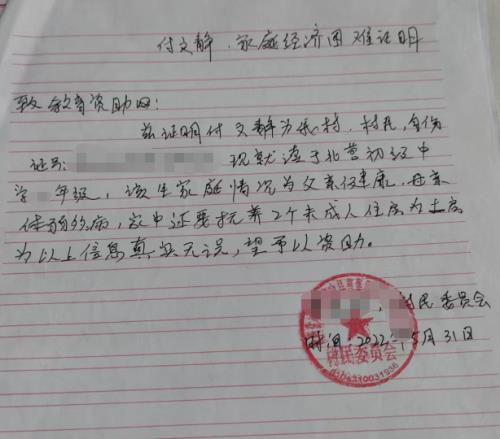 付文静.家庭经济困难证明
致教育资助网:
兹证明付文静为我村.村民,身份
证号: 现就读于北营初级中
学 年级,该生家庭情况为父亲健康.母亲
体弱多病,家中还要抚养2个未成人住房为土房
为以上信息真实无误,望予以资助。
,村民委员会
时间:2022年,5月31日
村民委员会